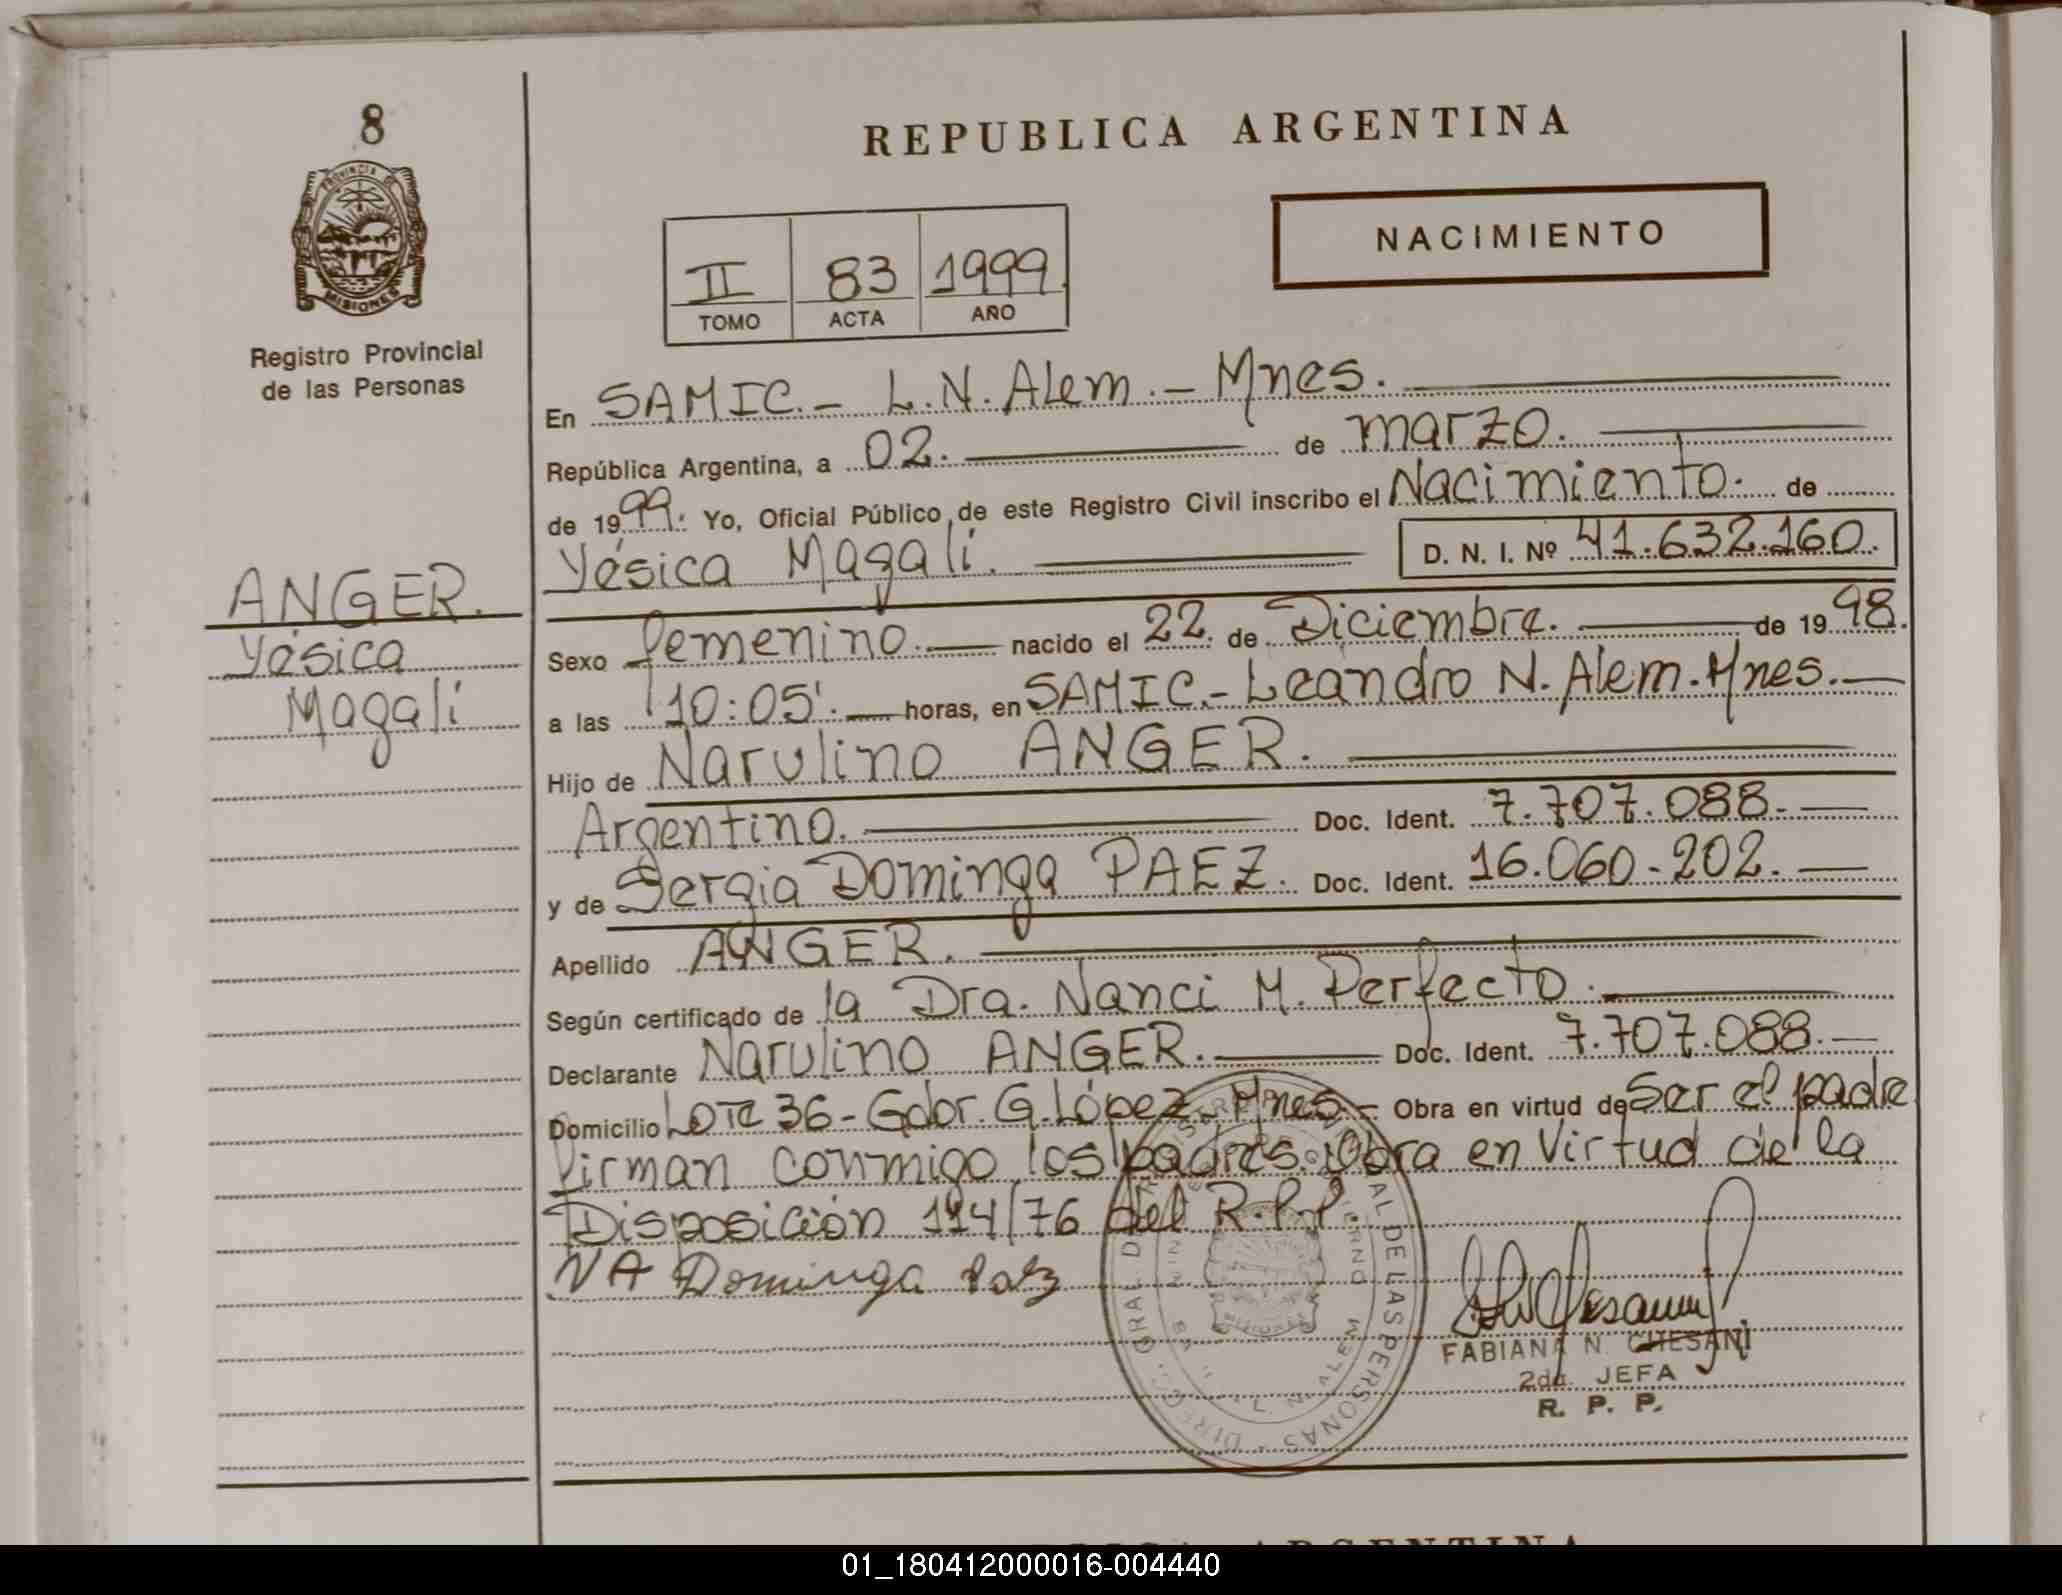 8
REPUBLICA ARGENTINA
PROVINCIA DE
MISIONES
NACIMIENTO
II 83 1999
TOMO ACTA AÑO
Registro Provincial
de las Personas
En SAMIC.- L.N.Alem.- Mnes.
República Argentina, a 02. de marzo.
de 1999. Yo, Oficial Público de este Registro Civil inscribo el Nacimiento. de
Yésica Magalí. D. N. I. Nº 41.632.160.
ANGER.
Yésica
Magalí
Sexo femenino. nacido el 22. de Diciembre. de 1998.
a las 10:05'. horas, en SAMIC.- Leandro N. Alem.Mnes.
Hijo de Narulino ANGER.
Argentino. Doc. Ident. 7.707.088.
y de Sergia Dominga PAEZ. Doc. Ident. 16.060.202.
Apellido ANGER.
Según certificado de la Dra. Nanci M. Perfecto.
Declarante Narulino ANGER. Doc. Ident. 7.707.088.
Domicilio Lote 36 - Gdor. G. López - Mnes - Obra en virtud de ser el padre
firman conmigo los padres. Obra en Virtud de la
Disposición 114/76 del R.P.P.
NA Dominga Paez
FABIANA N. CHESANI
2da. JEFA
R. P. P.
REPUBLICA ARGENTINA
01_180412000016-004440